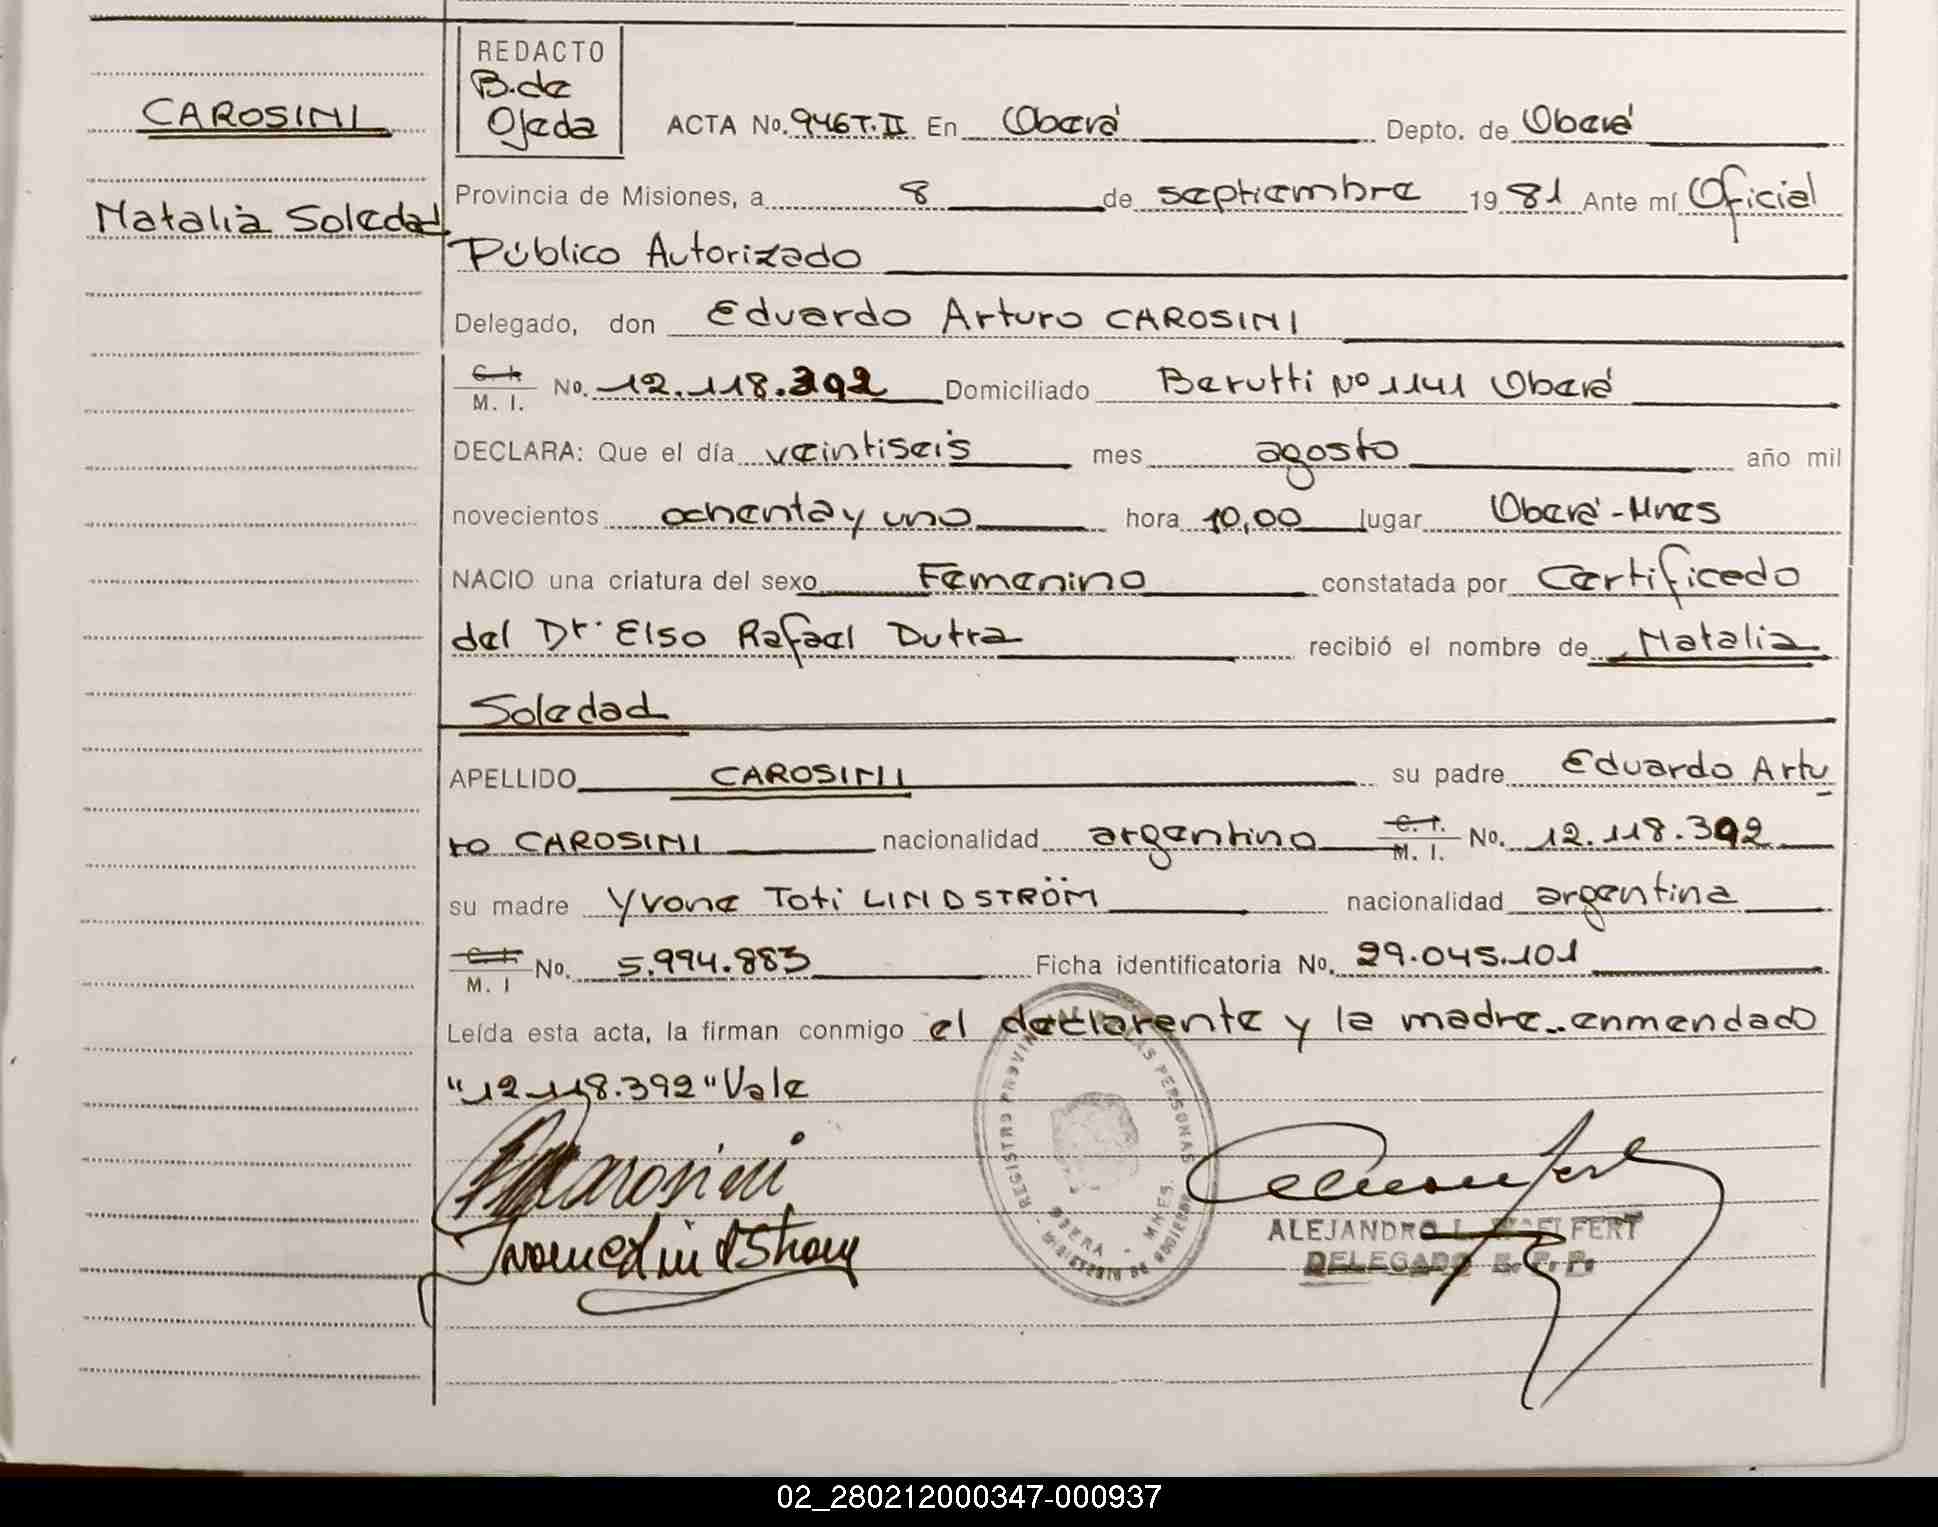 REDACTO
B. de
Ojeda
CAROSINI
Natalia Soledad
ACTA No. 946 T. II En Oberá Depto. de Oberá
Provincia de Misiones, a 8 de septiembre 19 81 Ante mí Oficial
Público Autorizado
Delegado, don Eduardo Arturo CAROSINI
C. I. M. I. No. 12.118.392 Domiciliado Berutti Nº 1141 Oberá
DECLARA: Que el día veintiseis mes agosto año mil
novecientos ochenta y uno hora 10,00 lugar Oberá - Mnes
NACIO una criatura del sexo Femenino constatada por Certificado
del Dr. Elso Rafael Dutra recibió el nombre de Natalia
Soledad
APELLIDO CAROSINI su padre Eduardo Artu
ro CAROSINI nacionalidad argentino C. I. M. I. No. 12.118.392
su madre Yvone Toti LINDSTRÖM nacionalidad argentina
C. I. M. I No. 5.994.883 Ficha identificatoria No. 29.045.101
Leída esta acta, la firman conmigo el declarante y la madre.. enmendado
"12.118.392" Vale
REGISTRO PROVINCIAL DE LAS PERSONAS
OBERA - MNES.
MINISTERIO DE GOBIERNO
ALEJANDRO L.
DELEGADO R. P. P.
02_280212000347-000937